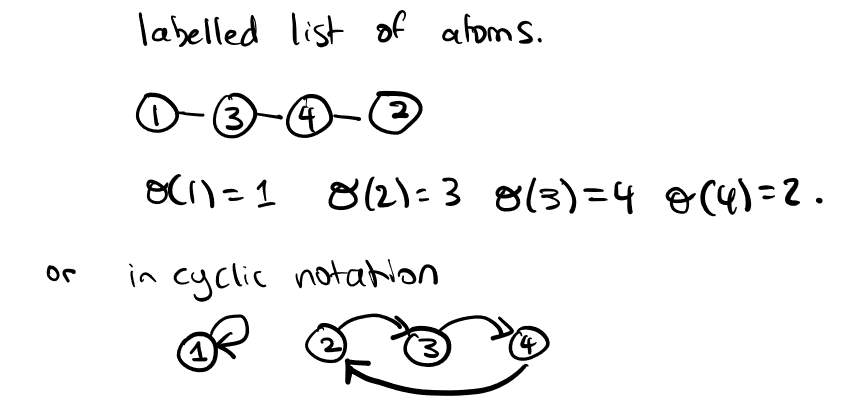 labelled list of atoms.
1 - 3 - 4 - 2
σ(1) = 1 σ(2) = 3 σ(3) = 4 σ(4) = 2.
or in cyclic notation
1 2 3 4